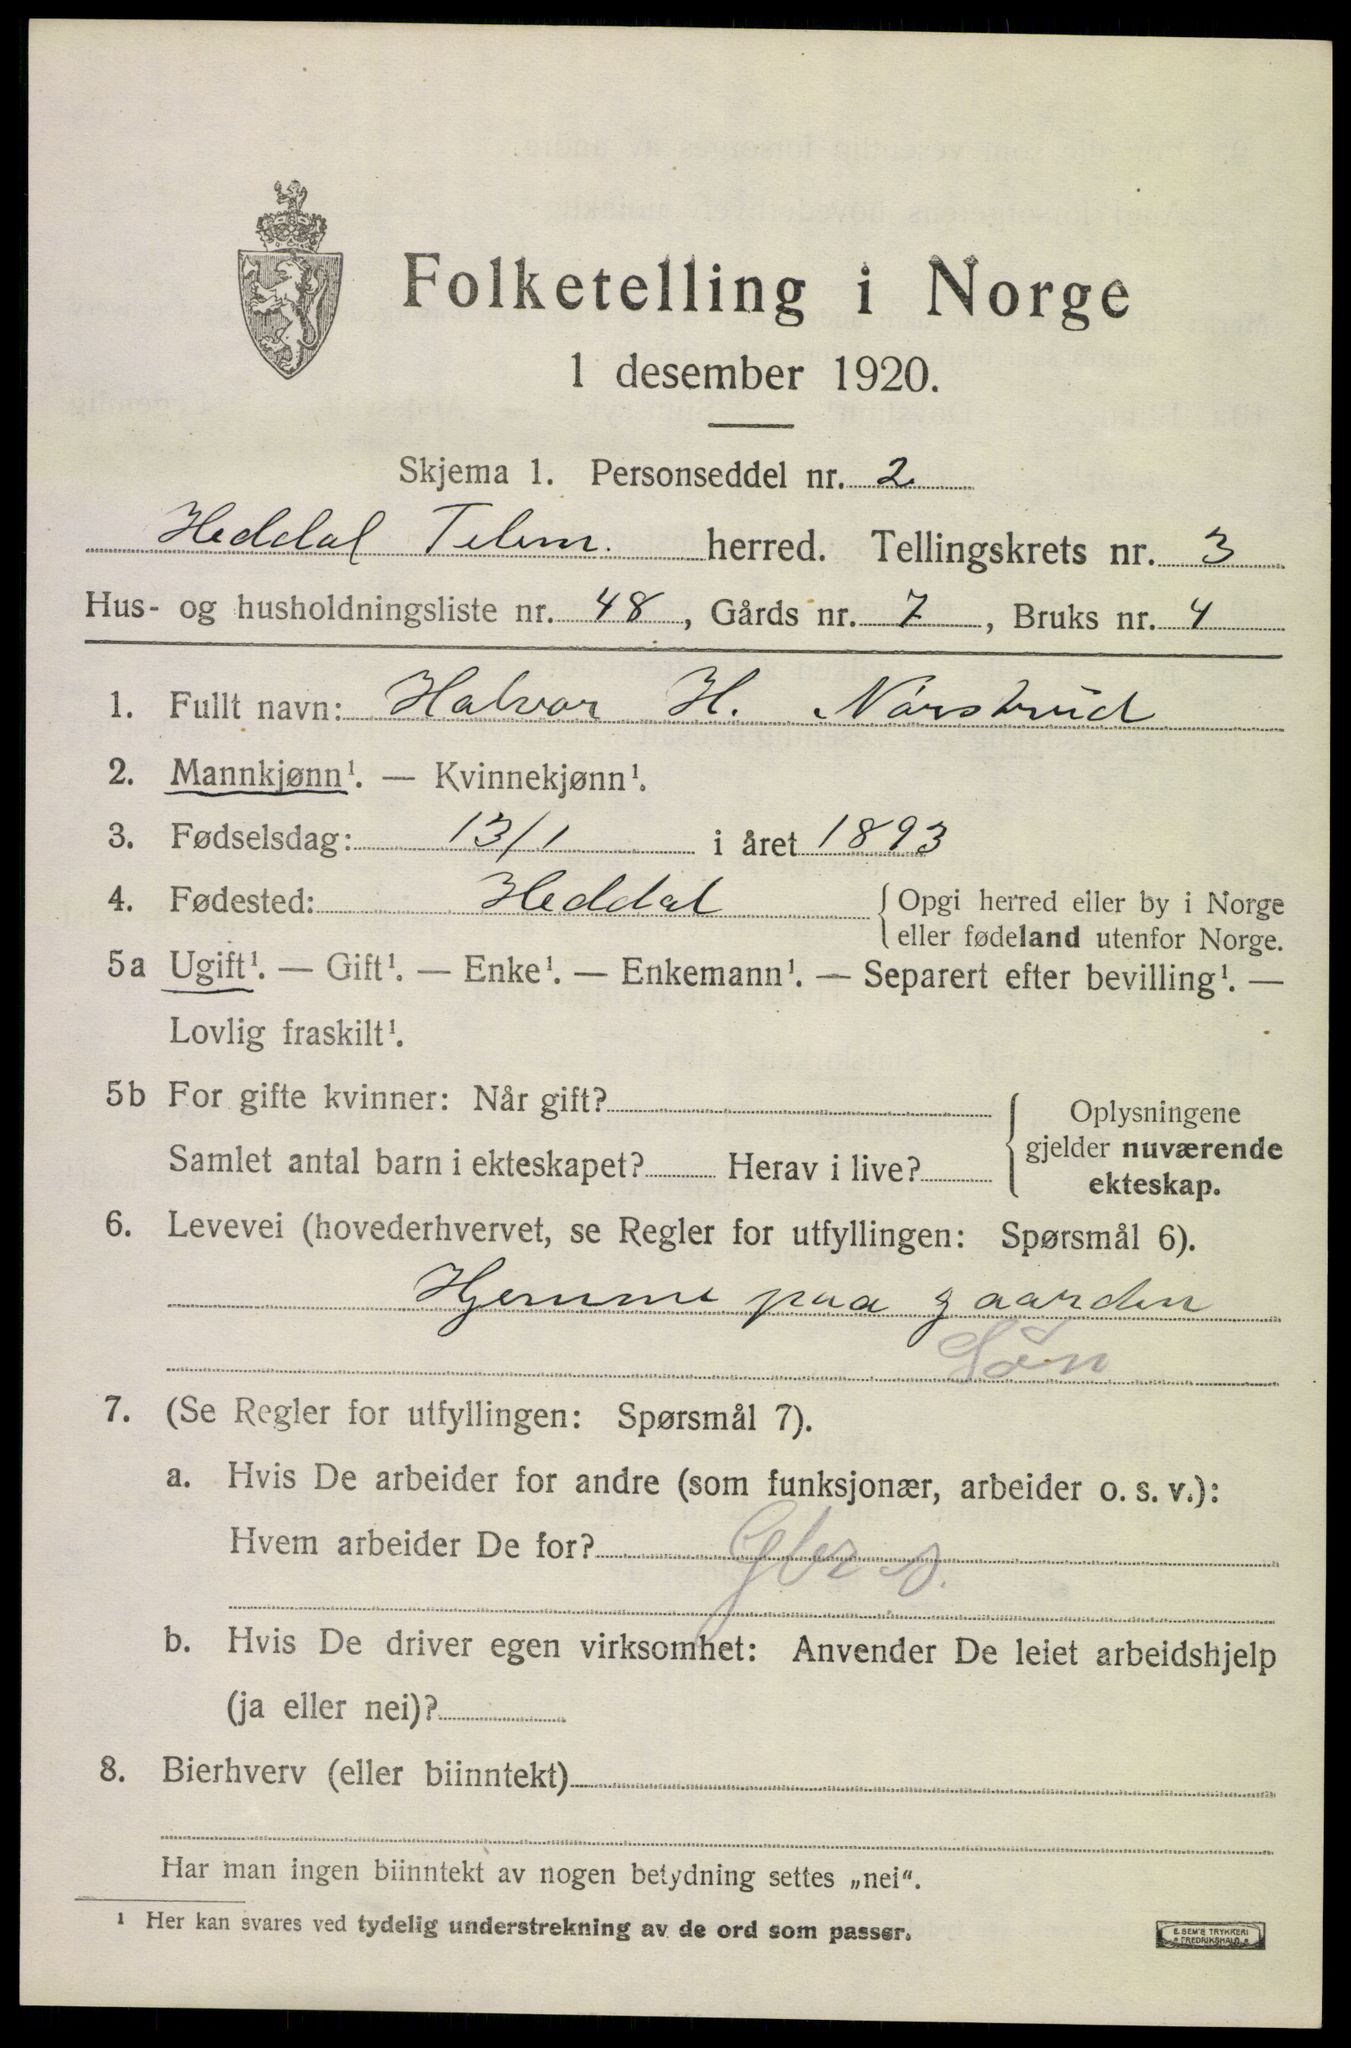 Folketelling i Norge
1 desember 1920.
Skjema 1. Personseddel nr. 2
Heddal Telem. herred. Tellingskrets nr. 3
Hus- og husholdningsliste nr. 48, Gårds nr. 7, Bruks nr. 4
1. Fullt navn: Halvor H. Nørstrud
2. Mannkjønn¹. — Kvinnekjønn¹.
3. Fødselsdag: 13/1 i året 1893
4. Fødested: Heddal { Opgi herred eller by i Norge
eller fødeland utenfor Norge.
5a Ugift¹. — Gift¹. — Enke¹. — Enkemann¹. — Separert efter bevilling¹. —
Lovlig fraskilt¹.
5b For gifte kvinner: Når gift?
Samlet antal barn i ekteskapet? Herav i live?
Oplysningene
gjelder nuværende
ekteskap.
6. Levevei (hovederhvervet, se Regler for utfyllingen: Spørsmål 6).
Hjemme paa gaarden
Søn
7. (Se Regler for utfyllingen: Spørsmål 7).
a. Hvis De arbeider for andre (som funksjonær, arbeider o. s. v.):
Hvem arbeider De for? Gbr s.
b. Hvis De driver egen virksomhet: Anvender De leiet arbeidshjelp
(ja eller nei)?
8. Bierhverv (eller biinntekt)
Har man ingen biinntekt av nogen betydning settes „nei“.
¹ Her kan svares ved tydelig understrekning av de ord som passer.
E. SEM'S TRYKKERI
FREDRIKSHALD